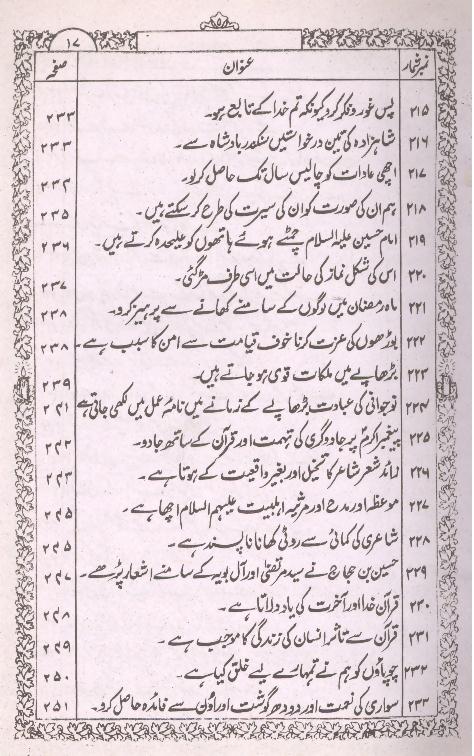 ۱۷
نمبر شمار عنوان صفحہ
۲۱۵ پس غور و فکر کرو کیونکہ تم خدا کے تابع ہو۔ ۲۳۳
۲۱۶ شاہزادہ کی تین درخواستیں سکندر بادشاہ سے۔ ۲۳۳
۲۱۷ اچھی عادات کو چالیس سال تک حاصل کرلو۔ ۲۳۴
۲۱۸ ہم ان کی صورت کو ان کی سیرت کی طرح کر سکتے ہیں۔ ۲۳۵
۲۱۹ امام حسین علیہ السلام چمٹے ہوئے ہاتھوں کو علیحدہ کرتے ہیں۔ ۲۳۶
۲۲۰ اس کی شکل نماز کی حالت میں اسی طرف مڑ گئی۔ ۲۳۷
۲۲۱ ماہ رمضان میں لوگوں کے سامنے کھانے سے پرہیز کرو۔ ۲۳۸
۲۲۲ بوڑھوں کی عزت کرنا خوف قیامت سے امن کا سبب ہے۔ ۲۳۸
۲۲۳ بڑھاپے میں ملکات قوی ہو جاتے ہیں۔ ۲۳۹
۲۲۴ نوجوانی کی عبادت بڑھاپے کے زمانے میں نامۂ عمل میں لکھی جاتی ہے ۲۴۱
۲۲۵ پیغمبر اکرمؐ پر جادوگری کی تہمت اور قرآن کے ساتھ جادو۔ ۲۴۲
۲۲۶ زائد شعر شاعر کا تخیل اور بغیر واقعیت کے ہوتا ہے۔ ۲۴۳
۲۲۷ موعظہ اور مدح اور مرثیہ اہلبیت علیہم السلام اچھا ہے۔ ۲۴۵
۲۲۸ شاعری کی کمائی سے روٹی کھانا ناپسند ہے۔ ۲۴۵
۲۲۹ حسین بن حجاج نے سید مرتضیٰ اور آل بویہ کے سامنے اشعار پڑھے۔ ۲۴۷
۲۳۰ قرآن خدا اور آخرت کی یاد دلاتا ہے۔ ۲۴۸
۲۳۱ قرآن سے تاثر انسان کی زندگی کا موجب ہے۔ ۲۴۹
۲۳۲ چوپاؤں کو ہم نے تمہارے لیے خلق کیا ہے۔ ۲۵۰
۲۳۳ سواری کی نعمت اور دودھ گوشت اور اون سے فائدہ حاصل کرو۔ ۲۵۱